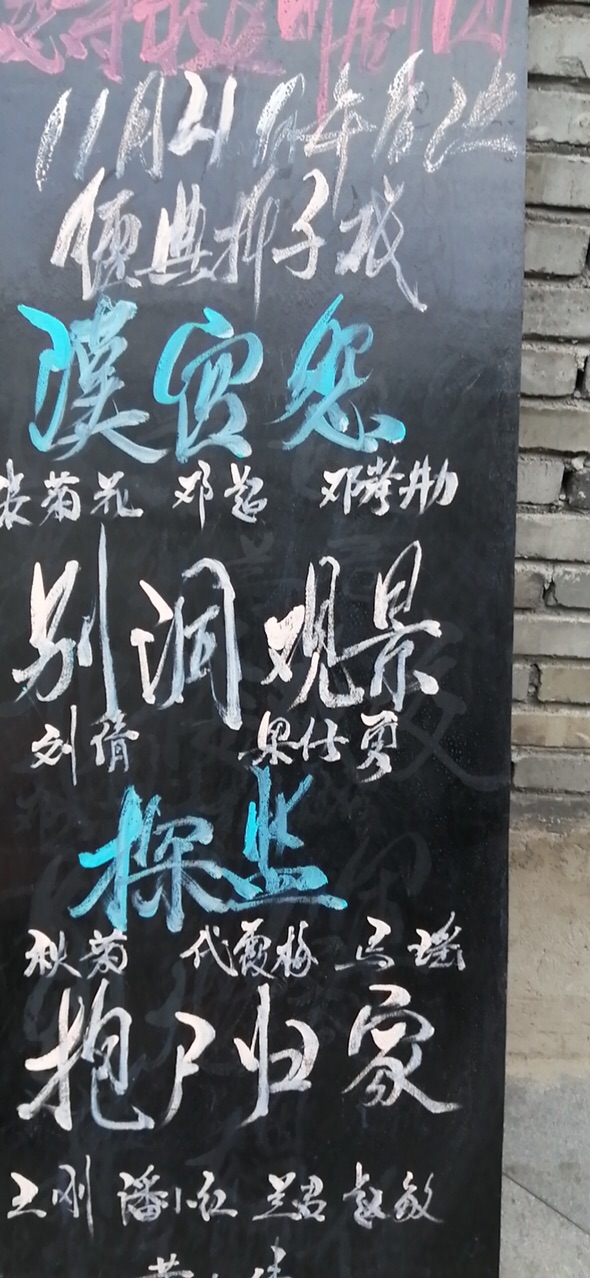 11月21日午后演
经典折子戏
漢宫怨
菊花 邓超 邓孝勋
别洞观景
刘倩 果仕勇
探监
秋菊 代霞梅 马瑶
抱尸归家
王刚 潘小红 兰君 赵敏